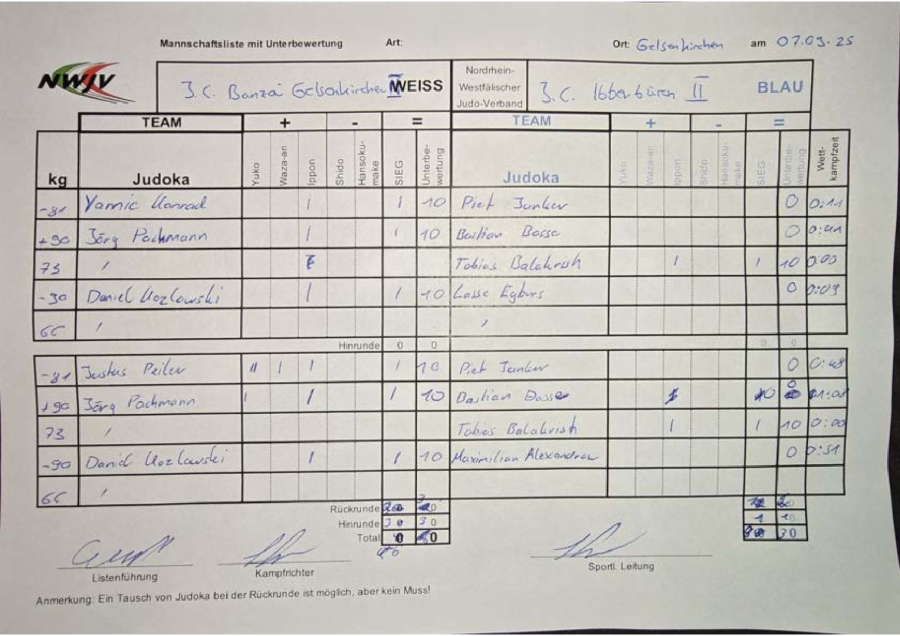 Mannschaftsliste mit Unterbewertung Art: Ort: Gelsenkirchen am 07.03.25
NWJV J.C. Banzai Gelsenkirchen WEISS Nordrhein-Westfälischer Judo-Verband J.C. Ibbenbüren II BLAU
TEAM + - = TEAM + - =
kg Judoka Yuko Waza-ari Ippon Shido Hansoku-make SIEG Unterbe-wertung Judoka Yuko Waza-ari Ippon Shido Hansoku-make SIEG Unterbe-wertung Wett-kampfzeit
-81 Yannic Konrad I I 10 Piet Junker 0 0:11
+90 Jörg Pochmann I I 10 Bastian Dosse 0 0:41
73 / Tobias Balakrish I I 10 0:00
Daniel Kozlowski I I 10 Lasse Egbers 0 0:03
66 / /
Hinrunde 0 0 0 0
-81 Justus Peiler II I I I 10 Piet Junker 0 0:48
+90 Jörg Pochmann I I I 10 Bastian Dosse 0
73 / Tobias Balakrish I I 10 0:00
-90 Daniel Kozlowski I I 10 Maximilian Alexandrow 0 0:51
66 /
Rückrunde
Hinrunde 30 1 10
Total
Listenführung Kampfrichter Sportl. Leitung
Anmerkung: Ein Tausch von Judoka bei der Rückrunde ist möglich, aber kein Muss!